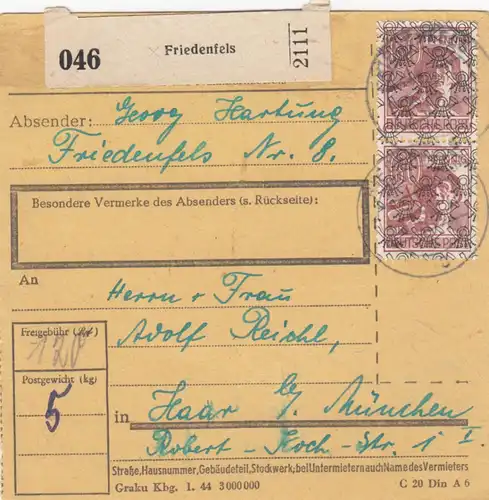 046 Friedenfels 2111
Absender: Georg Hartung
Friedenfels Nr. 8.
Besondere Vermerke des Absenders (s. Rückseite):
An
Herrn u Frau
Adolf Reichl,
Freigebühr (Rpf)
120
Postgewicht (kg)
5
in Haar b/ München
Robert-Koch-Str. 1 I.
Straße, Hausnummer, Gebäudeteil, Stockwerk; bei Untermietern auch Name des Vermieters
Graku Kbg. 1. 44 3000000 C 20 Din A 6
DEUTSCHE POST
DEUTSCHE POST